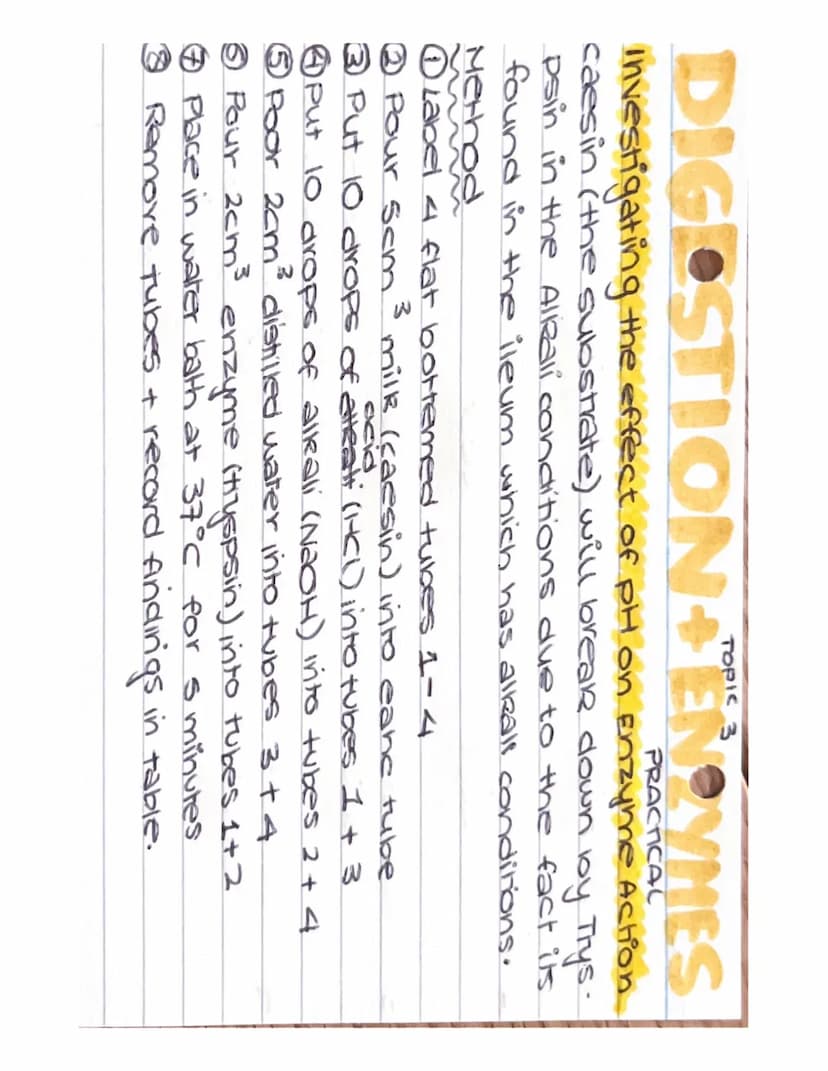 TOPIC 3
DIGESTION + ENZYMES
PRACTICAL
Investigating the effect of pH on Enzyme Action
caesin (the substrate) will break down by Tryps-
psin in the Alkali conditions due to the fact its
found in the ileum which has alkali conditions.
Method
① Label 4 flat bottemed tubes 1-4
② Pour 5cm³ milk (caessin) into eahc tube
acid
③ Put 10 drops of alkali (HCl) into tubes 1 + 3
④ Put 10 drops of alkali (NaOH) into tubes 2 + 4
⑤ Poor 2cm³ distilled water into tubes 3 + 4
⑥ Pour 2cm³ enzyme (tryspsin) into tubes 1+2
⑦ Place in water bath at 37°C for 5 minutes
⑧ Remove tubes + record findings in table.